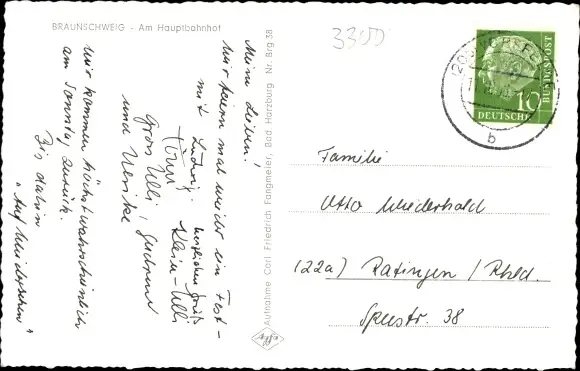 BRAUNSCHWEIG - Am Hauptbahnhof
3300
Meine Lieben!
Wir feiern mal wieder ein Fest-
mit Ludwig.
herzlichen Gruß
Klein-Ulli
Groß Ulli, Gudrun
und Ulrike
Wir kommen höchstwahrscheinlich
am Sonntag zurück.
Bis dahin
"Auf Wiedersehen"
Aufnahme Carl Friedrich Fangmeier, Bad Harzburg Nr. Brg 38
Agfa
DEUTSCHE
BUNDESPOST
10
b
Familie
Otto Wiederhold
(22a) Ratingen/Rhld.
Speestr. 38